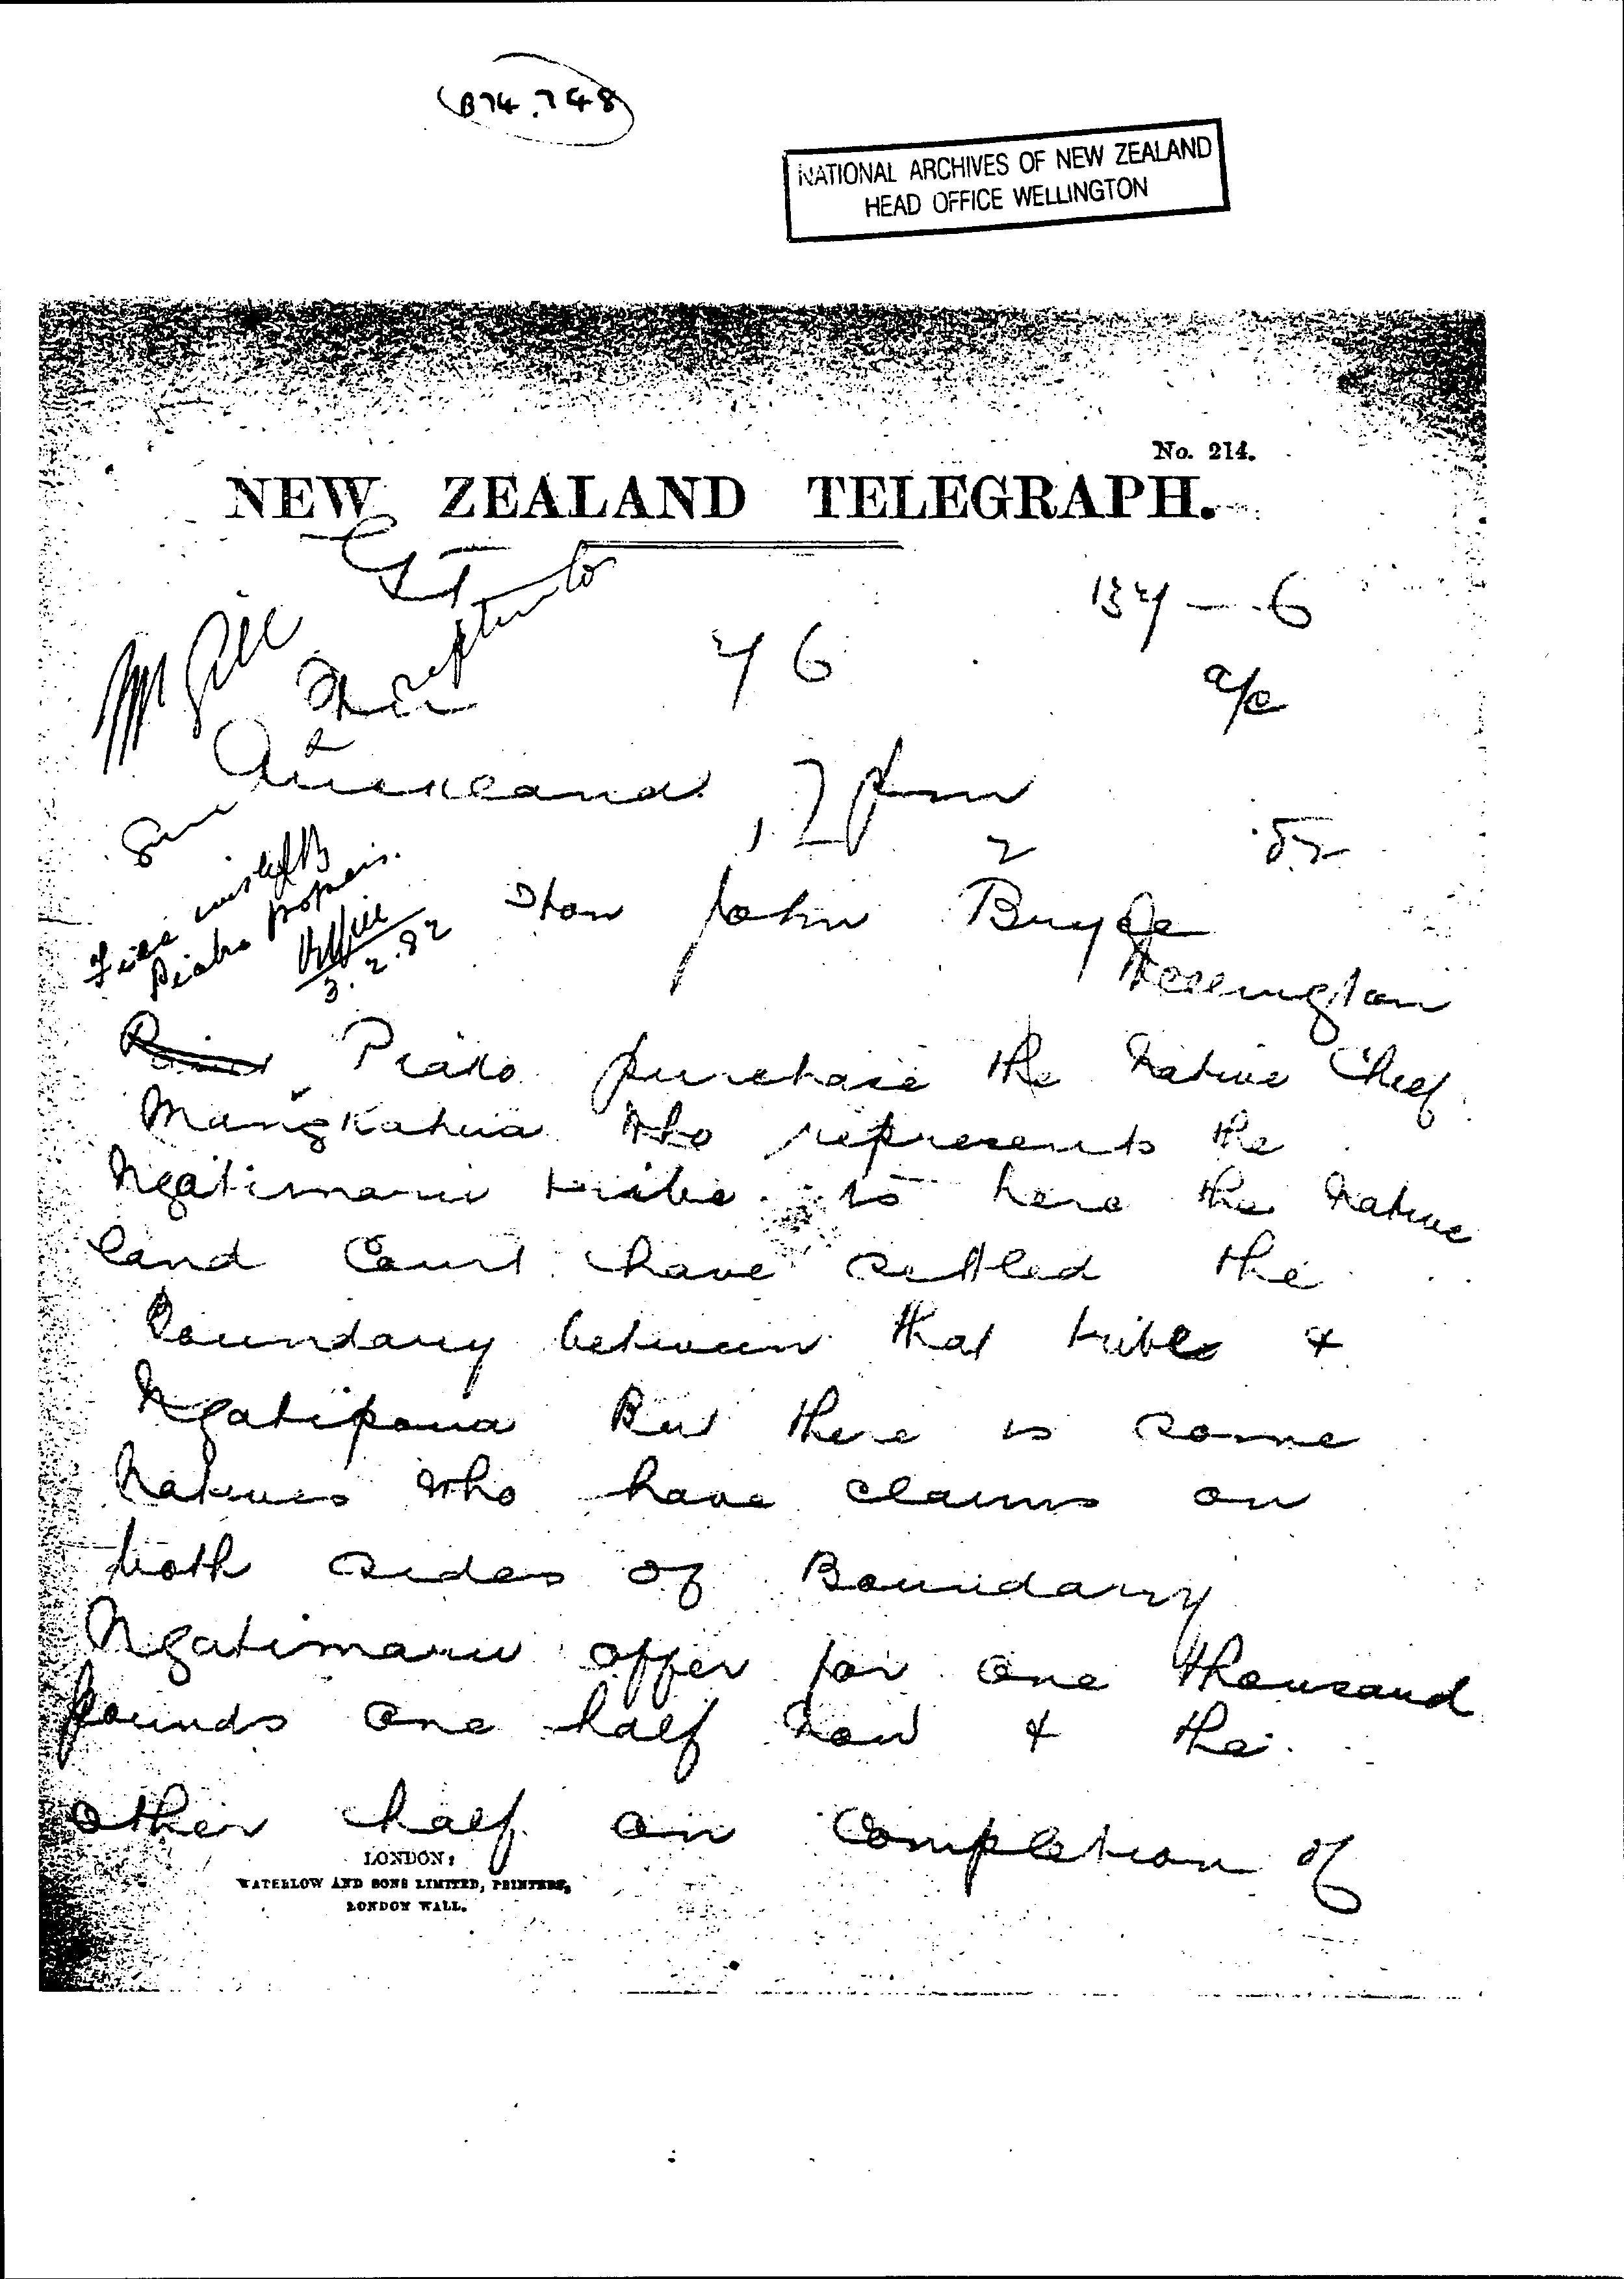 B74.748
NATIONAL ARCHIVES OF NEW ZEALAND
HEAD OFFICE WELLINGTON
No. 214.
NEW ZEALAND TELEGRAPH.
Mr Gill
46
a/c
Auckland
2
82
Hon John Bryce
Wellington
File
Piako papers.
3.2.82
Piako purchase the Native Chief
Mangkahia who represents the
Ngatimaru tribe is here the Native
land Court have settled the
Boundary between that tribe &
Ngatipaoa But there is some
Natives who have claims on
both sides of Boundary
Ngatimaru offer for one thousand
pounds one half now & the
other half on Completion of
LONDON:
WATERLOW AND SONS LIMITED, PRINTERS,
LONDON WALL.